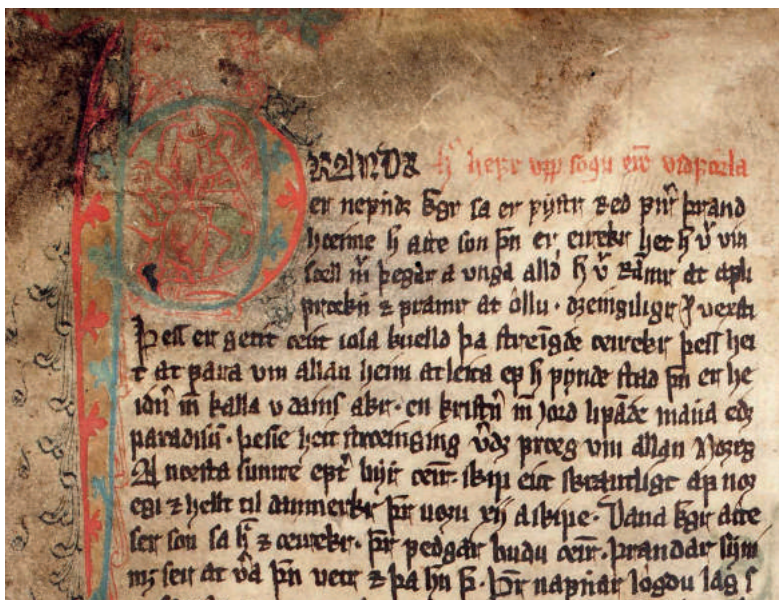 ÞRANDR h͛ hefr vpp sogu eir̄ vidforla
er nefndr kgr sa er fystr red fyr͛ þrand
heime h atte son þn̄ er eirekr het h v͛ vin
sæll m̄ þegar a vnga alld͛ h v͛ ram̄r at afli
frækn̄ ⁊ framr at ollu · dreingiligr j vexti
Þess er getit eitt iola kuelld þa streīgde eirekr þess hei
t at fara vm allan heim at leita ef h fynde stad þn̄ er he
idn͛ m̄ kalla vdains akr · en kristn͛ m̄ iord lifāde māna edr
paradisū · þesse heit streinging v͛dr fræg vm allan Noreg
A næsta sumre ept͛ byr eir̄ · skip eitt skrautligt af nor
egi ⁊ hellt til danmerkr þr̄ uoru xij a skipe · Dana kgr atte
ser son sa h͛ ⁊ eirekr · þr̄ fedgar budu eir̄ · þrandar sym
mz ser at v͛a þn̄ vetr ⁊ þa hn̄ þ · Þr̄ nafnar logdu lag s